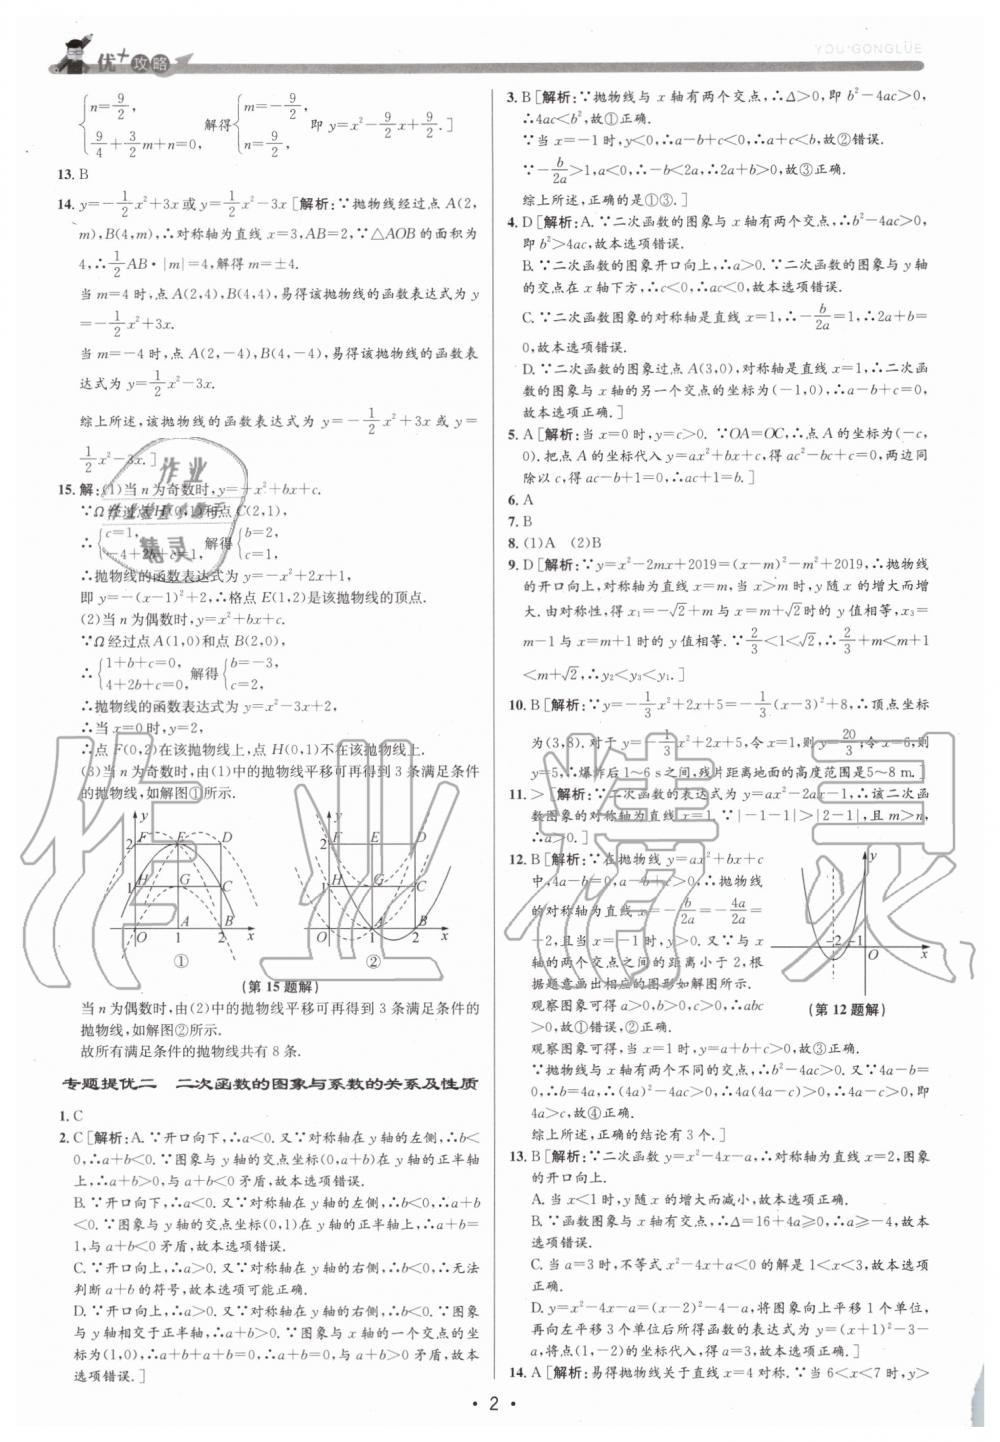 优+攻略
YOU+GONGLÜE
{n=9/2, 9/4+3/2m+n=0, 解得{m=-9/2, n=9/2, 即 y=x²-9/2x+9/2.]
13. B
14. y=-1/2x²+3x或y=1/2x²-3x[解析:∵抛物线经过点A(2,
m),B(4,m),∴对称轴为直线x=3,AB=2,∵△AOB的面积为
4,∴1/2AB·|m|=4,解得m=±4.
当m=4时,点A(2,4),B(4,4),易得该抛物线的函数表达式为y
=-1/2x²+3x.
当m=-4时,点A(2,-4),B(4,-4),易得该抛物线的函数表
达式为y=1/2x²-3x.
综上所述,该抛物线的函数表达式为y=-1/2x²+3x或y=
1/2x²-3x.]
15. 解:(1)当n为奇数时,y=-x²+bx+c.
∵Ω经过点H(0,1)和点C(2,1),
∴{c=1, -4+2b+c=1, 解得{b=2, c=1,
∴抛物线的函数表达式为y=-x²+2x+1,
即y=-(x-1)²+2,∴格点E(1,2)是该抛物线的顶点.
(2)当n为偶数时,y=x²+bx+c.
∵Ω经过点A(1,0)和点B(2,0),
∴{1+b+c=0, 4+2b+c=0, 解得{b=-3, c=2,
∴抛物线的函数表达式为y=x²-3x+2,
∴当x=0时,y=2,
∴点F(0,2)在该抛物线上,点H(0,1)不在该抛物线上.
(3)当n为奇数时,由(1)中的抛物线平移可再得到3条满足条件
的抛物线,如解图①所示.
y 2 F E D 1 H G C O 1 A 2 B x ①
y 2 F E D 1 H G C O A 1 2 B x ②
(第15题解)
当n为偶数时,由(2)中的抛物线平移可再得到3条满足条件的
抛物线,如解图②所示.
故所有满足条件的抛物线共有8条.
专题提优二 二次函数的图象与系数的关系及性质
1. C
2. C[解析:A.∵开口向下,∴a<0.又∵对称轴在y轴的左侧,∴b<
0,∴a+b<0.∵图象与y轴的交点坐标(0,a+b)在y轴的正半轴
上,∴a+b>0,与a+b<0矛盾,故本选项错误.
B.∵开口向下,∴a<0.又∵对称轴在y轴的左侧,∴b<0,∴a+b
<0.∵图象与y轴的交点坐标(0,1)在y轴的正半轴上,∴a+b=
1,与a+b<0矛盾,故本选项错误.
C.∵开口向上,∴a>0.又∵对称轴在y轴的右侧,∴b<0,∴无法
判断a+b的符号,故本选项可能正确.
D.∵开口向上,∴a>0.又∵对称轴在y轴的右侧,∴b<0.∵图象
与y轴相交于正半轴,∴a+b>0.∵图象与x轴的一个交点的坐
标为(1,0),∴a+b+a+b=0,∴a+b=0,与a+b>0矛盾,故本选
项错误.]
3. B[解析:∵抛物线与x轴有两个交点,∴Δ>0,即b²-4ac>0,
∴4ac<b²,故①正确.
∵当x=-1时,y<0,∴a-b+c<0,∴a+c<b,故②错误.
∵-b/2a>1,a<0,∴-b<2a,∴2a+b>0,故③正确.
综上所述,正确的是①③.]
4. D[解析:A.∵二次函数的图象与x轴有两个交点,∴b²-4ac>0,
即b²>4ac,故本选项错误.
B.∵二次函数的图象开口向上,∴a>0.∵二次函数的图象与y轴
的交点在x轴下方,∴c<0,∴ac<0,故本选项错误.
C.∵二次函数图象的对称轴是直线x=1,∴-b/2a=1,∴2a+b=
0,故本选项错误.
D.∵二次函数的图象过点A(3,0),对称轴是直线x=1,∴二次函
数的图象与x轴的另一个交点的坐标为(-1,0),∴a-b+c=0,
故本选项正确.]
5. A[解析:当x=0时,y=c>0.∵OA=OC,∴点A的坐标为(-c,
0).把点A的坐标代入y=ax²+bx+c,得ac²-bc+c=0,两边同
除以c,得ac-b+1=0,∴ac+1=b.]
6. A
7. B
8. (1)A (2)B
9. D[解析:∵y=x²-2mx+2019=(x-m)²-m²+2019,∴抛物线
的开口向上,对称轴为直线x=m,当x>m时,y随x的增大而增
大.由对称性,得x₁=-√2+m与x=m+√2时的y值相等,x₃=
m-1与x=m+1时的y值相等.∵2/3<1<√2,∴2/3+m<m+1
<m+√2,∴y₂<y₃<y₁.]
10. B[解析:∵y=-1/3x²+2x+5=-1/3(x-3)²+8,∴顶点坐标
为(3,8).对于y=-1/3x²+2x+5,令x=1,则y=20/3;令x=6,则
y=5,∴爆炸后1~6 s之间,残片距离地面的高度范围是5~8 m.]
11. >[解析:∵二次函数的表达式为y=ax²-2ax-1,∴该二次函
数图象的对称轴为直线x=1.∵|-1-1|>|2-1|,且m>n,
∴a>0.]
12. B[解析:∵在抛物线y=ax²+bx+c
中,4a-b=0,a-b+c>0,∴抛物线
的对称轴为直线x=-b/2a=-4a/2a=
-2,且当x=-1时,y>0.又∵与x
轴的两个交点之间的距离小于2,根
据题意画出相应的图形如解图所示.
y -2 -1 O x
(第12题解)
观察图象可得a>0,b>0,c>0,∴abc
>0,故①错误,②正确.
观察图象可得,当x=1时,y=a+b+c>0,故③正确.
∵抛物线与x轴有两个不同的交点,∴b²-4ac>0.又∵4a-b=
0,∴b=4a,∴(4a)²-4ac>0,∴4a(4a-c)>0,∴4a-c>0,即
4a>c,故④正确.
综上所述,正确的结论有3个.]
13. B[解析:∵二次函数y=x²-4x-a,∴对称轴为直线x=2,图象
的开口向上.
A.当x<1时,y随x的增大而减小,故本选项正确.
B.∵函数图象与x轴有交点,∴Δ=16+4a≥0,∴a≥-4,故本
选项错误.
C.当a=3时,不等式x²-4x+a<0的解是1<x<3,故本选项
正确.
D.y=x²-4x-a=(x-2)²-4-a,将图象向上平移1个单位,
再向左平移3个单位后所得函数的表达式为y=(x+1)²-3-
a,将点(1,-2)的坐标代入,得a=3,故本选项正确.]
14. A[解析:易得抛物线关于直线x=4对称.∵当6<x<7时,y>
· 2 ·
作业
作业检查小助手
精灵
作业精灵